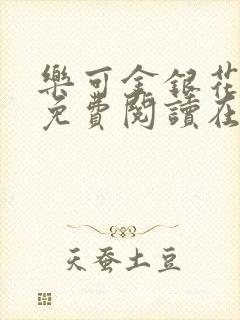 樂可金銀花
免費閱讀在
天蚕土豆